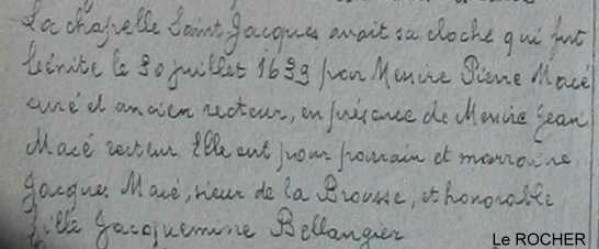 La chapelle Saint Jacques avait sa cloche qui fut
bénite le 30 juillet 1639 par Messire Pierre Macé
curé et ancien recteur, en présence de Messire Jean
Macé recteur. Elle eut pour parrain et marraine
Jacques Macé, sieur de la Brousse, et honorable
fille Jacquemine Bellangier
Le ROCHER